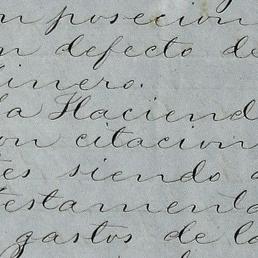 n posecion
n defecto de
dinero.
la Hacienda
on citacion
tes siendo
testamenta
gastos de la